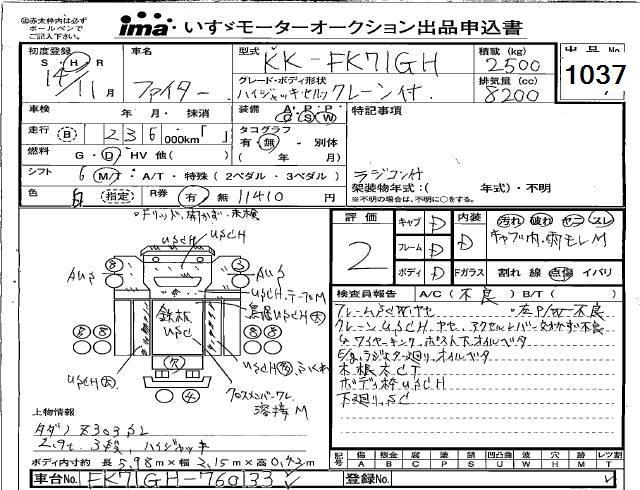 ㊟赤太枠内は必ず
ボールペンで
ご記入下さい。
ima いすゞモーターオークション出品申込書
初度登録 S・H・R 14/11月
車名 ファイター
型式 KK-FK71GH
積載(kg) 2500
出品No 1037
グレード・ボディ形状 ハイジャッキセルフ クレーン付.
排気量(cc) 8200
車検 年・月・抹消
装備 A・P・P・C・S・W
特記事項
走行 B 236,000km「 」
タコグラフ 有・無・別体
( 年 月)
燃料 G・D・HV 他( )
シフト 6 M/T・A/T・特殊(2ペダル・3ペダル)
ラジコン付
架装物年式:( 年式)・不明
※不明の場合は、不明に○をする。
色 白 指定
R券 有・無 11410円
評価 2
キャブ D
フレーム D
ボディ D
内装 D
汚れ 破れ ヤニ スレ
キャブ内・雨モレM
Fガラス 割れ 線 点傷 イバリ
検査員報告 A/C(不良) B/T( )
フレームSCW.ヤセ 左P/W不良
クレーンUSCH.ヤセ、アクセルレバー効かず不良
木根太CT
ボディ枠USCH
下廻り.SC
USCH
USCH
AUS
AUS
USCH.テープM
鉄板
USC
USCH大
クロスメンバーワレ
溶接M
上物情報
タダノ Z303SL
2.9t. 3段, ハイジャッキ
ボディ内寸約 長5.98m×幅2.15m×高0.42m
記号 A傷 B板金 C腐 P塗 S錆 U凹凸曲 W波 H穴 M跡 T切 レツ割
車台No. FK71GH-760133✓
登録No.